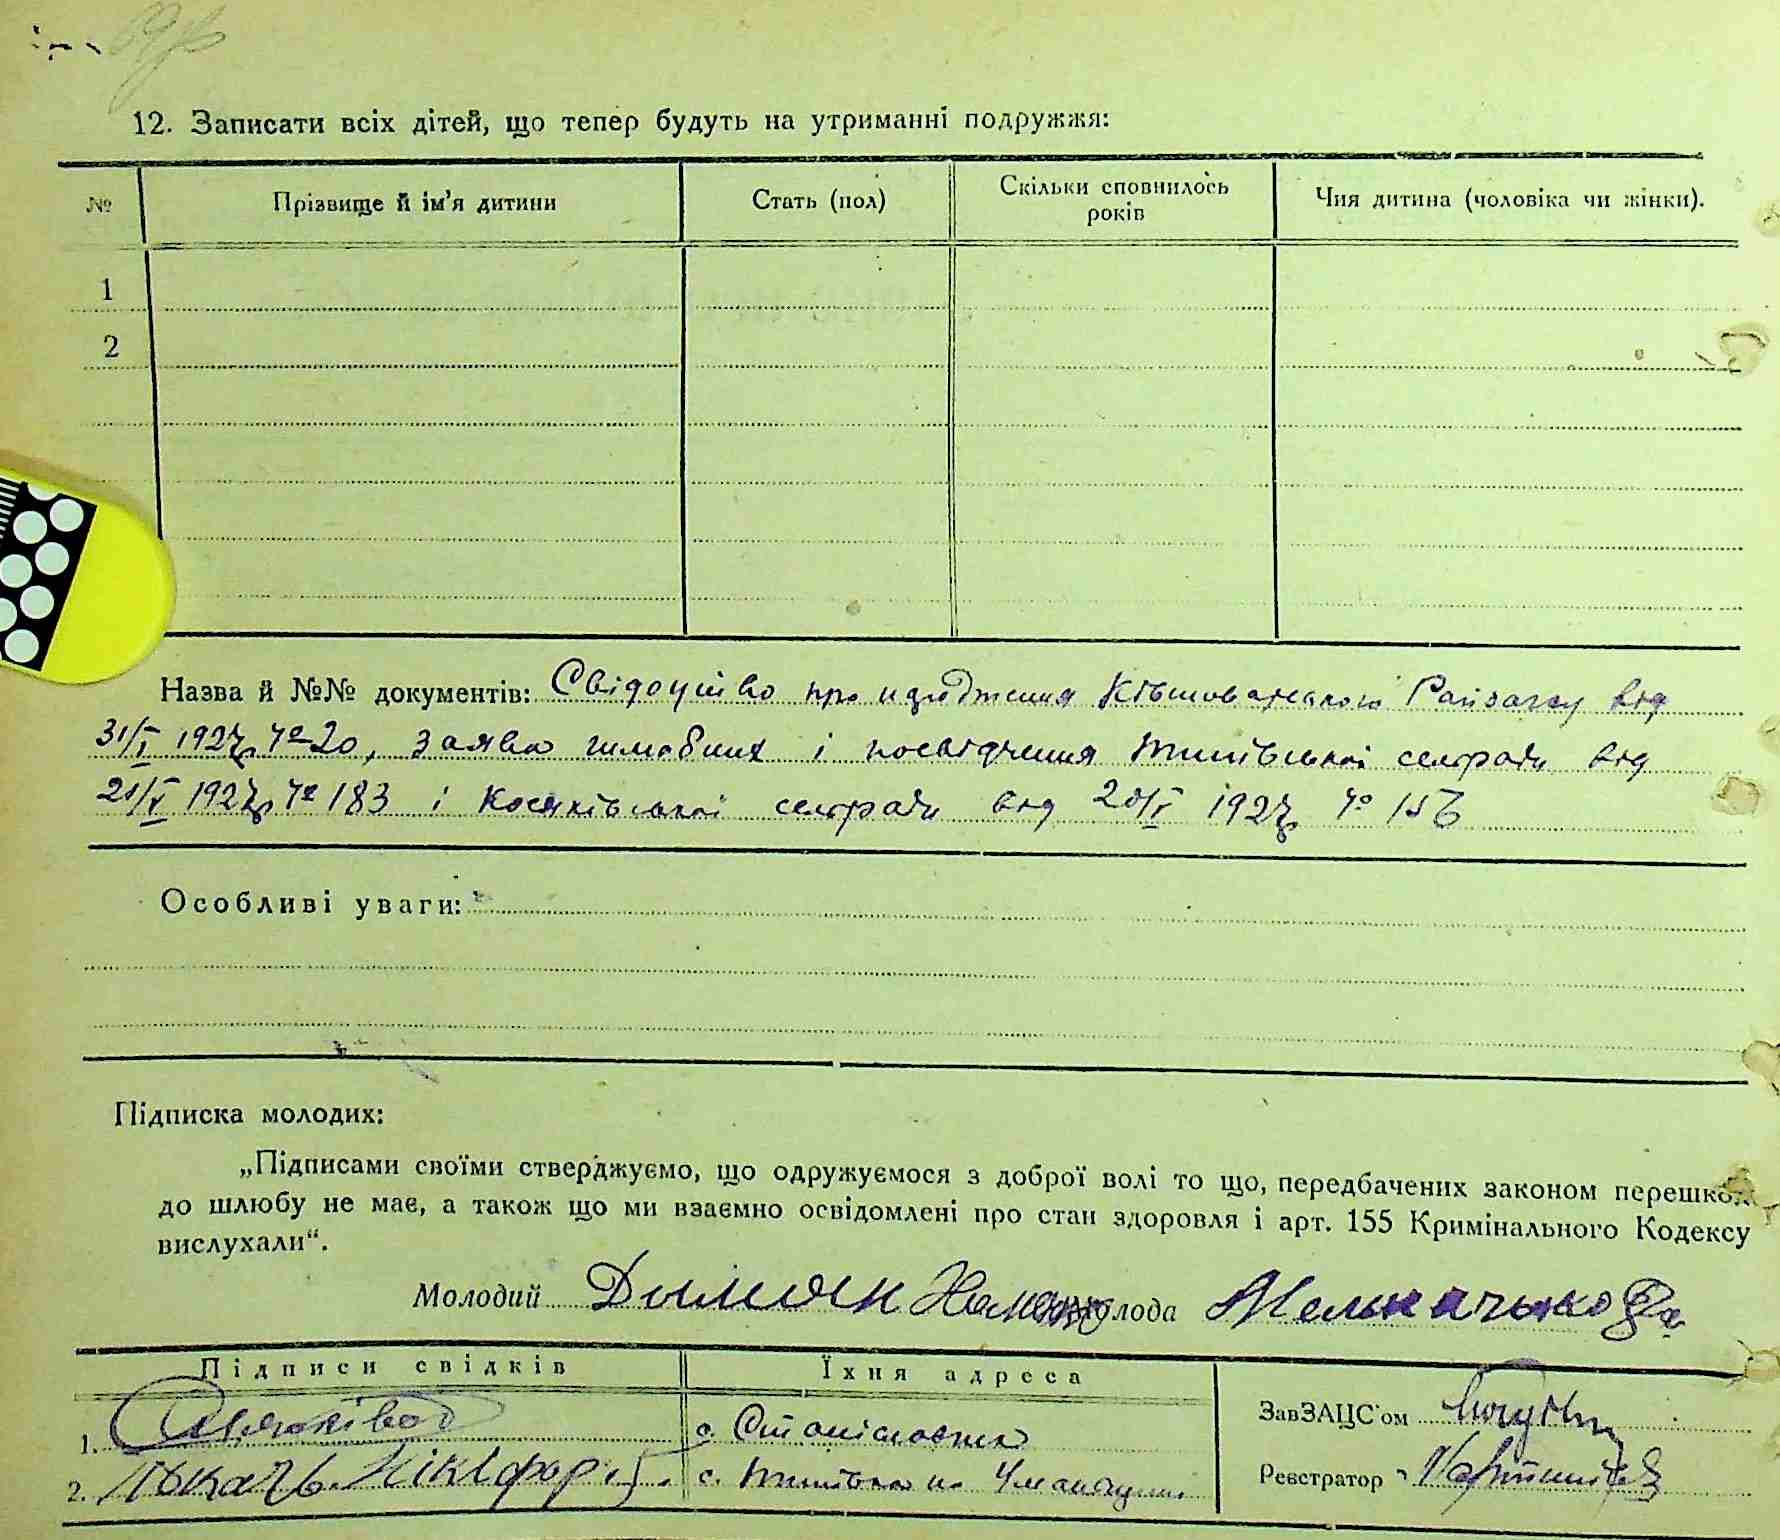 12. Записати всіх дітей, що тепер будуть на утриманні подружжя:
№ Прізвище й ім'я дитини Стать (пол) Скільки сповнилось років Чия дитина (чоловіка чи жінки).
1
2
Назва й №№ документів: Свідоцтво про Райзагсу від
31/I 1927р. № 20, заява і посвідчення сельради від
1927р. № 183 і Косяківської сельради від 1927р. № 156
Особливі уваги:
Підписка молодих:
„Підписами своїми стверджуємо, що одружуємося з доброї волі то що, передбачених законом перешкод
до шлюбу не має, а також що ми взаємно освідомлені про стан здоровля і арт. 155 Кримінального Кодексу
вислухали“.
Молодий Молода
Підписи свідків Їхня адреса
ЗавЗАЦС'ом
1. с. Станіславчик
2. Ткачь Нікіфор с. на Уманщині
Реєстратор